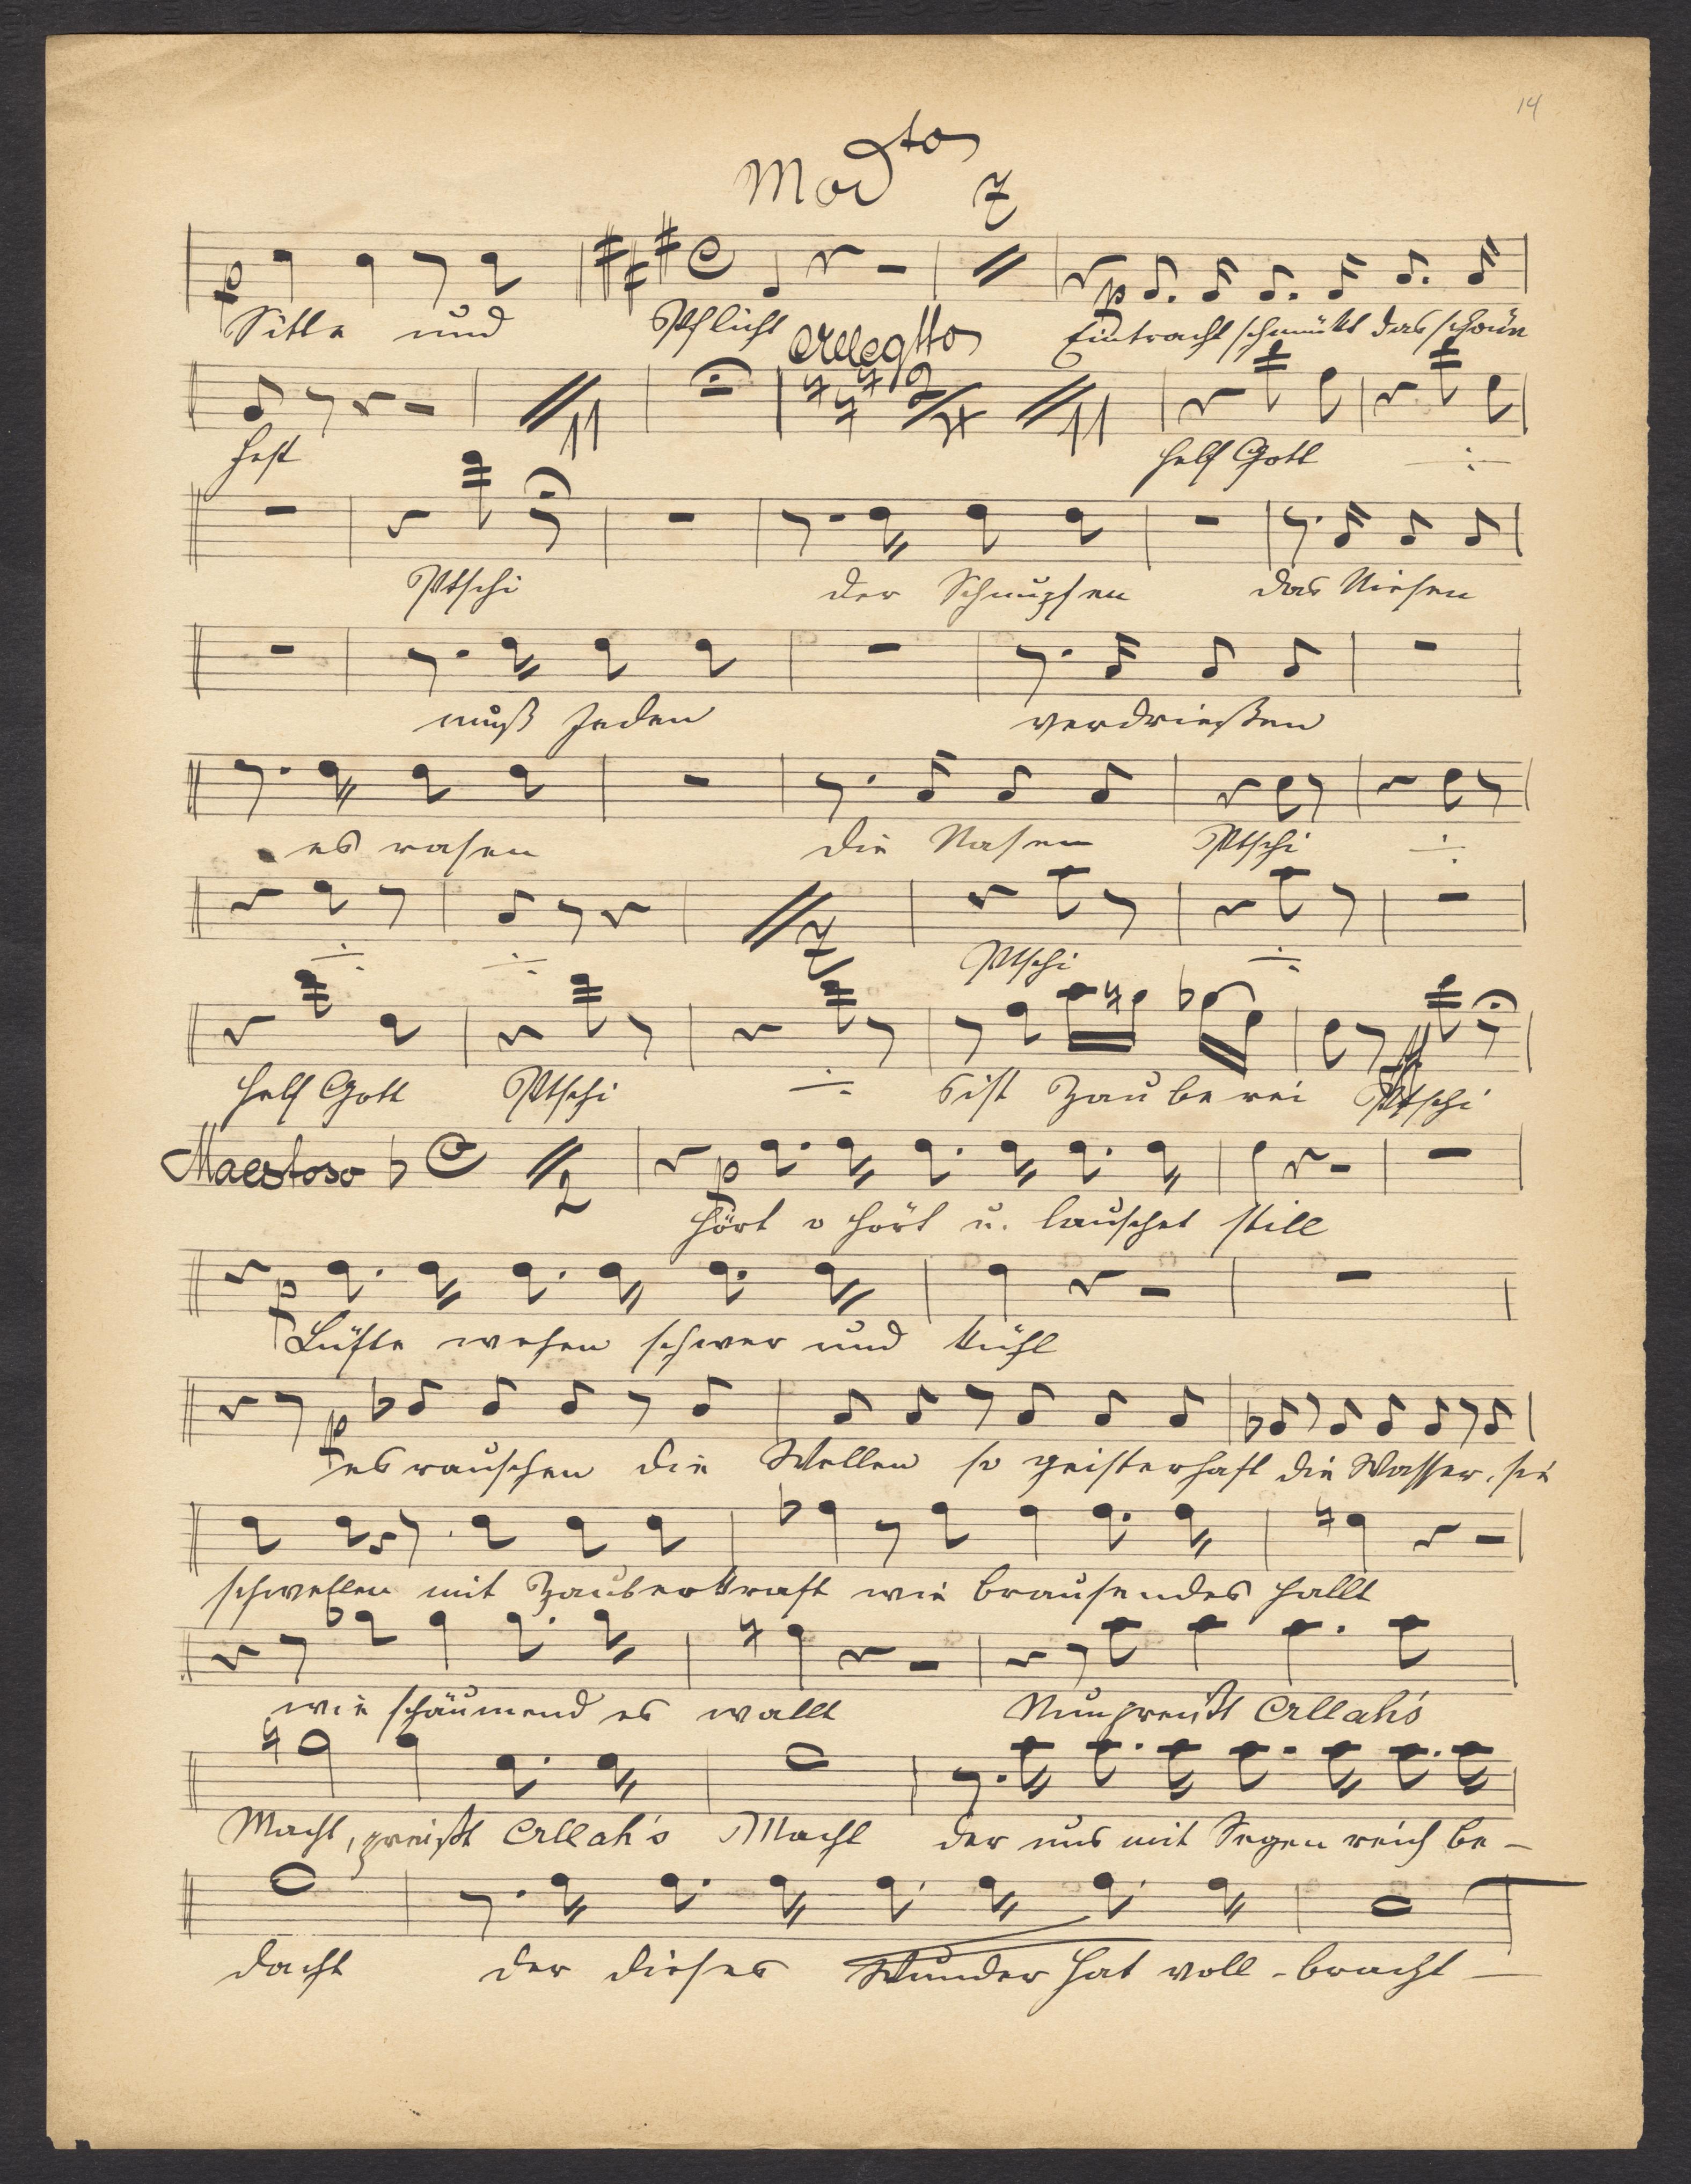 14
Modto
7
Sitte und Pflicht Eintracht schmükt das schöne
Allegtto
2/4
11 11
Fest helf Gott
Ptschi der Schnupfen das Niesen
muß Jeden verdrießen
es rasen die Nasen Ptschi
7
Ptschi
helf Gott Ptschi sist Zauberei Ptschi
Maestoso 2
p
hört o hört u. lauschet still
p
Lüfte wehen schwer und kühl
p
es rauschen die Wellen so geisterhaft die Wasser, sie
schwellen mit Zauberkraft wie brausendes hallt
wie schäumend es wallt Nun preißt Allah's
Macht, preißt Allah's Macht der uns mit Segen reich be-
dacht der dieses Wunder hat voll-bracht